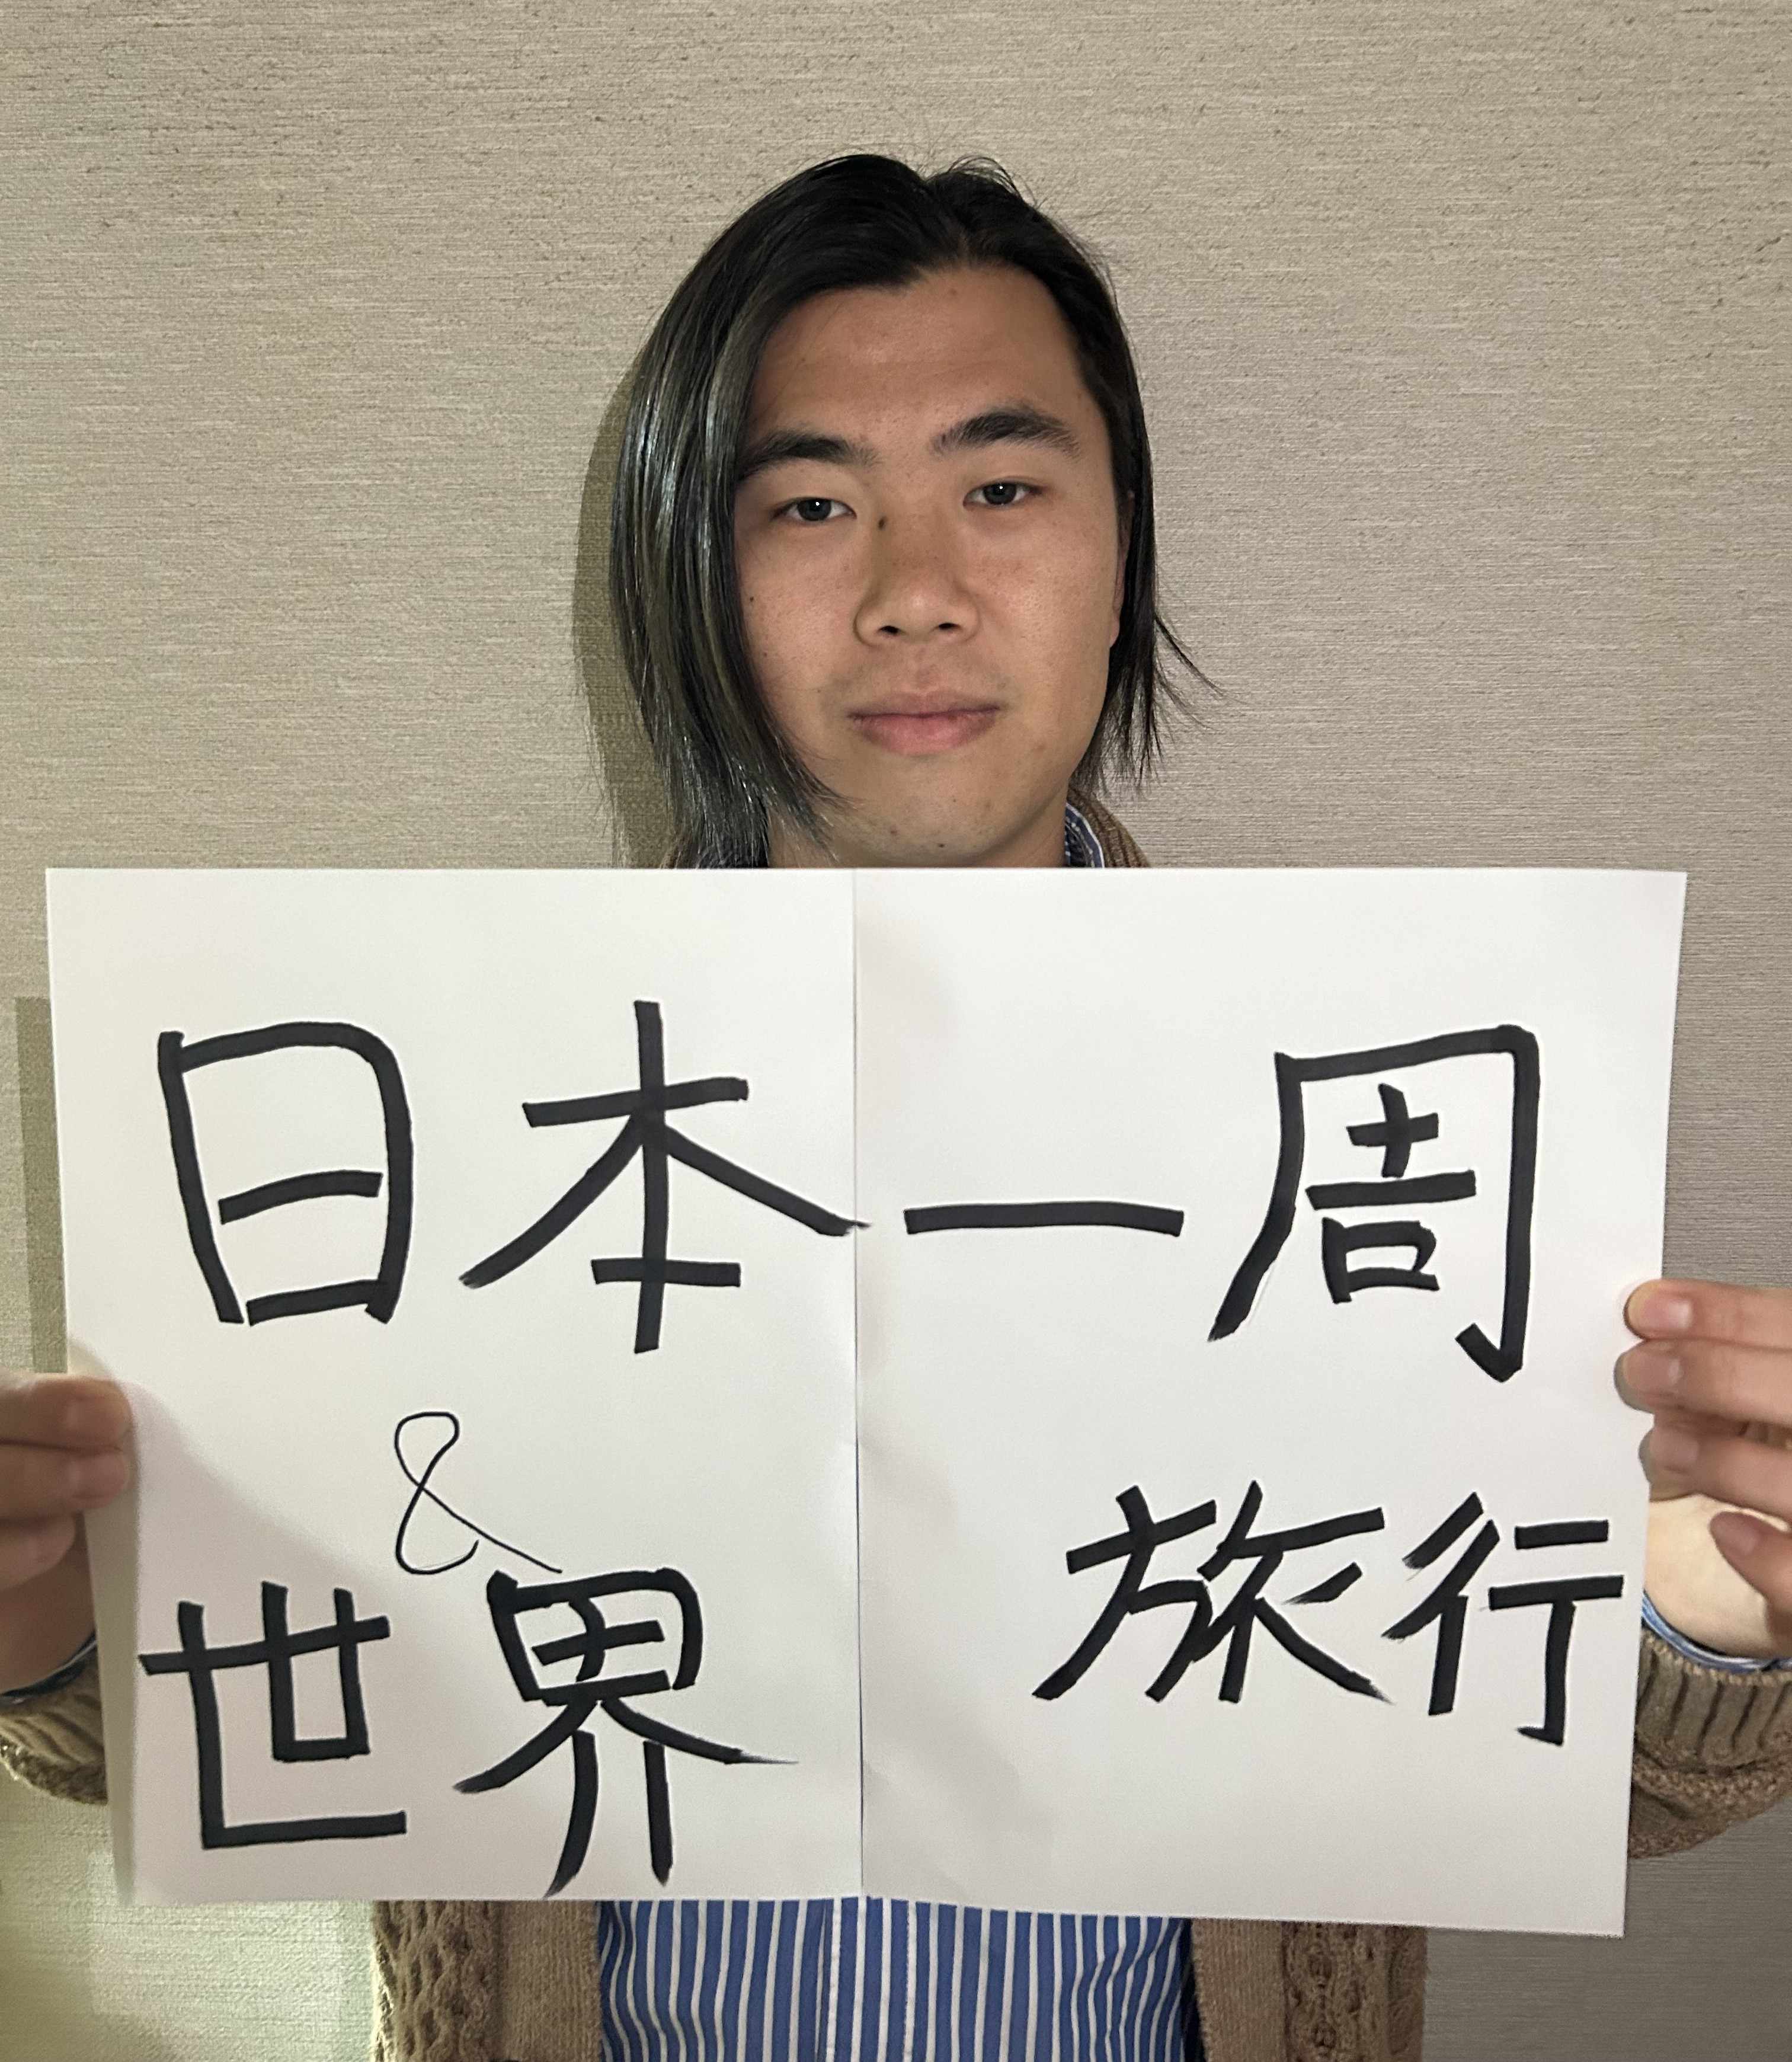 日本一周
&
世界 旅行